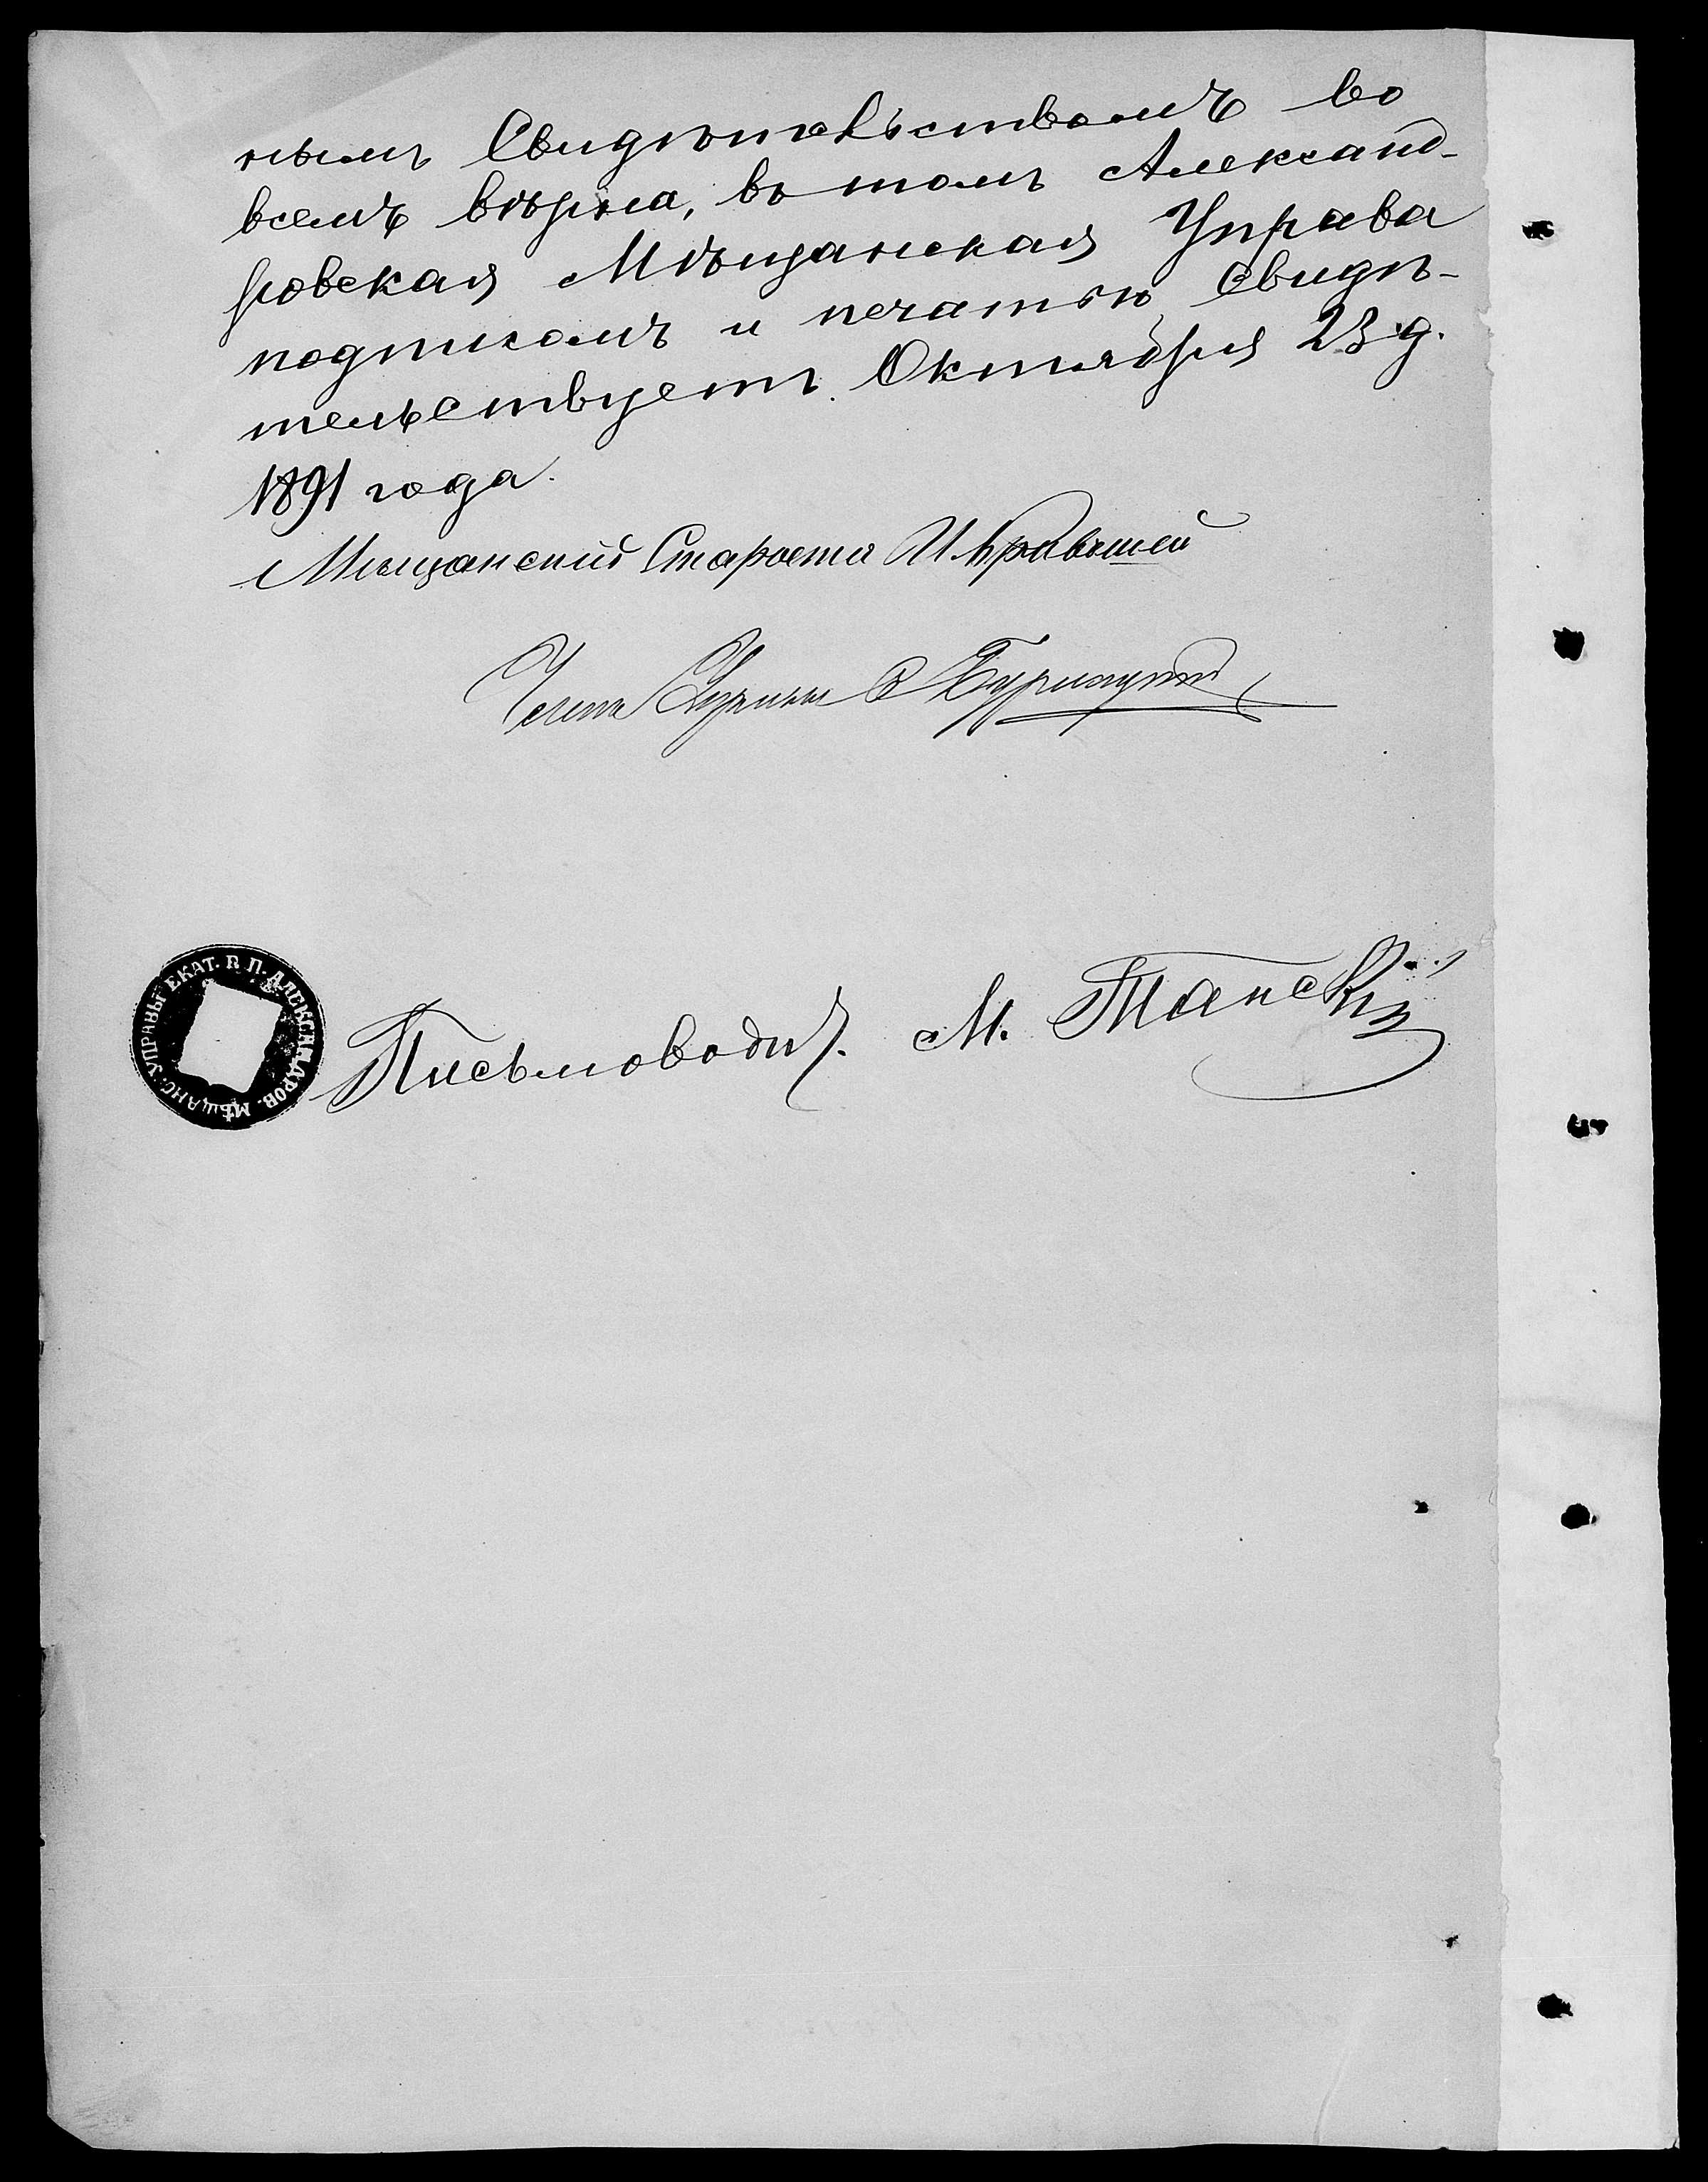 нымъ Свидѣтельствомъ во
всемъ вѣрна, въ томъ Александ-
ровская Мѣщанская Управа
подписомъ и печатью свидѣ-
тельствуетъ. Октября 23 д.
1891 года.
Мѣщанскій Староста И.
Члены Управы
ЕКАТ. П. АЛЕКСАНДРОВ. МѢЩАНС. УПРАВЫ
Письмоводит. М. Танскій